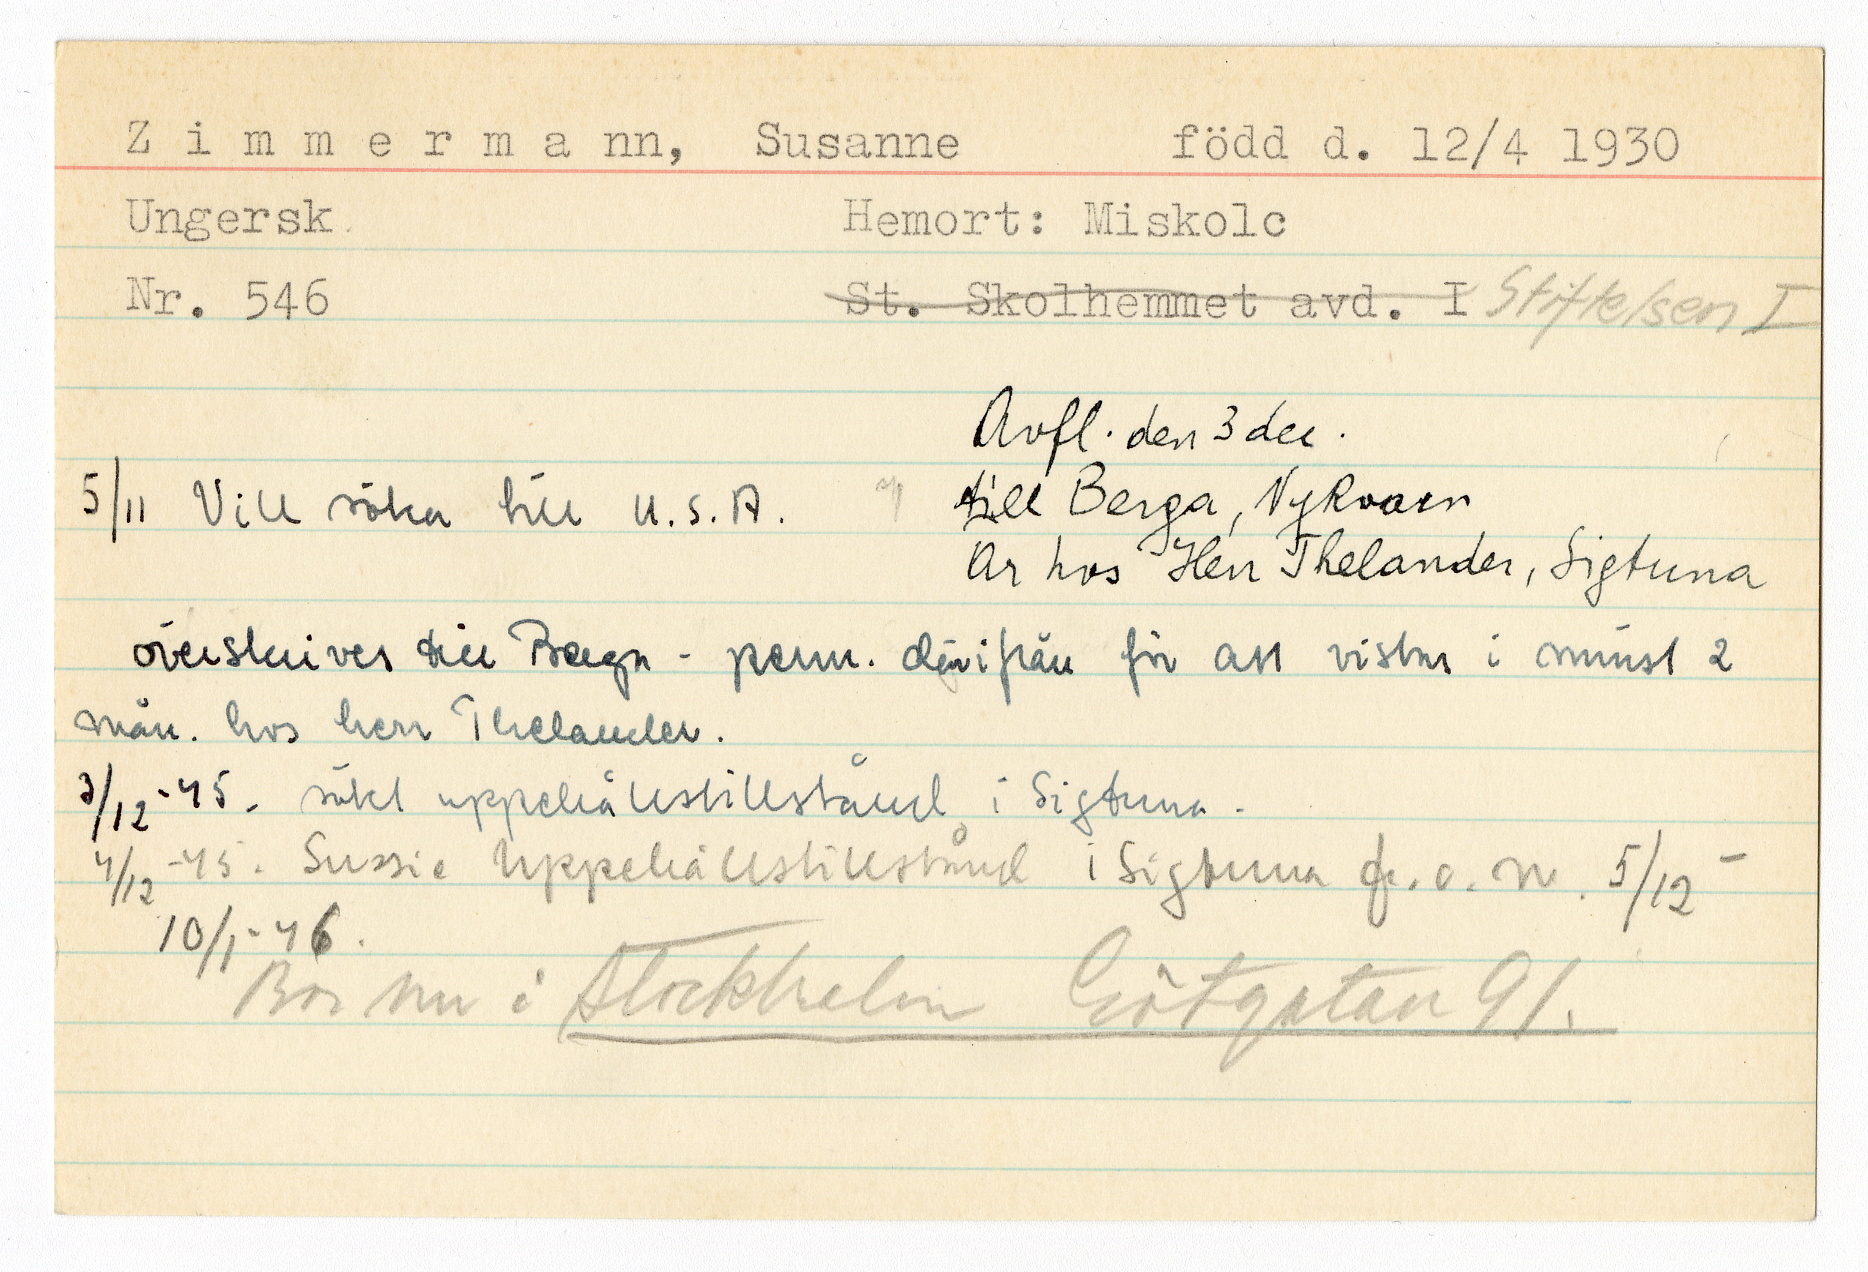 Zimmermann, Susanne född d. 12/4 1930
Ungersk. Hemort: Miskolc
Nr. 546 St. Skolhemmet avd. I Stiftelsen I
Avfl. den 3 dec.
5/11 Vill söka till U.S.A.
till Berga, Nykvarn
Är hos Herr Thelander, Sigtuna
överskrives till Berga - perm. därifrån för att vistas i minst 2
mån. hos herr Thelander.
3/12 -45. sökt uppehållstillstånd i Sigtuna.
4/12 -45. Sussie Uppehållstillstånd i Sigtuna fr. o. m. 5/12 -
10/1 - 46.
Bor nu i Stockholm Götgatan 91.